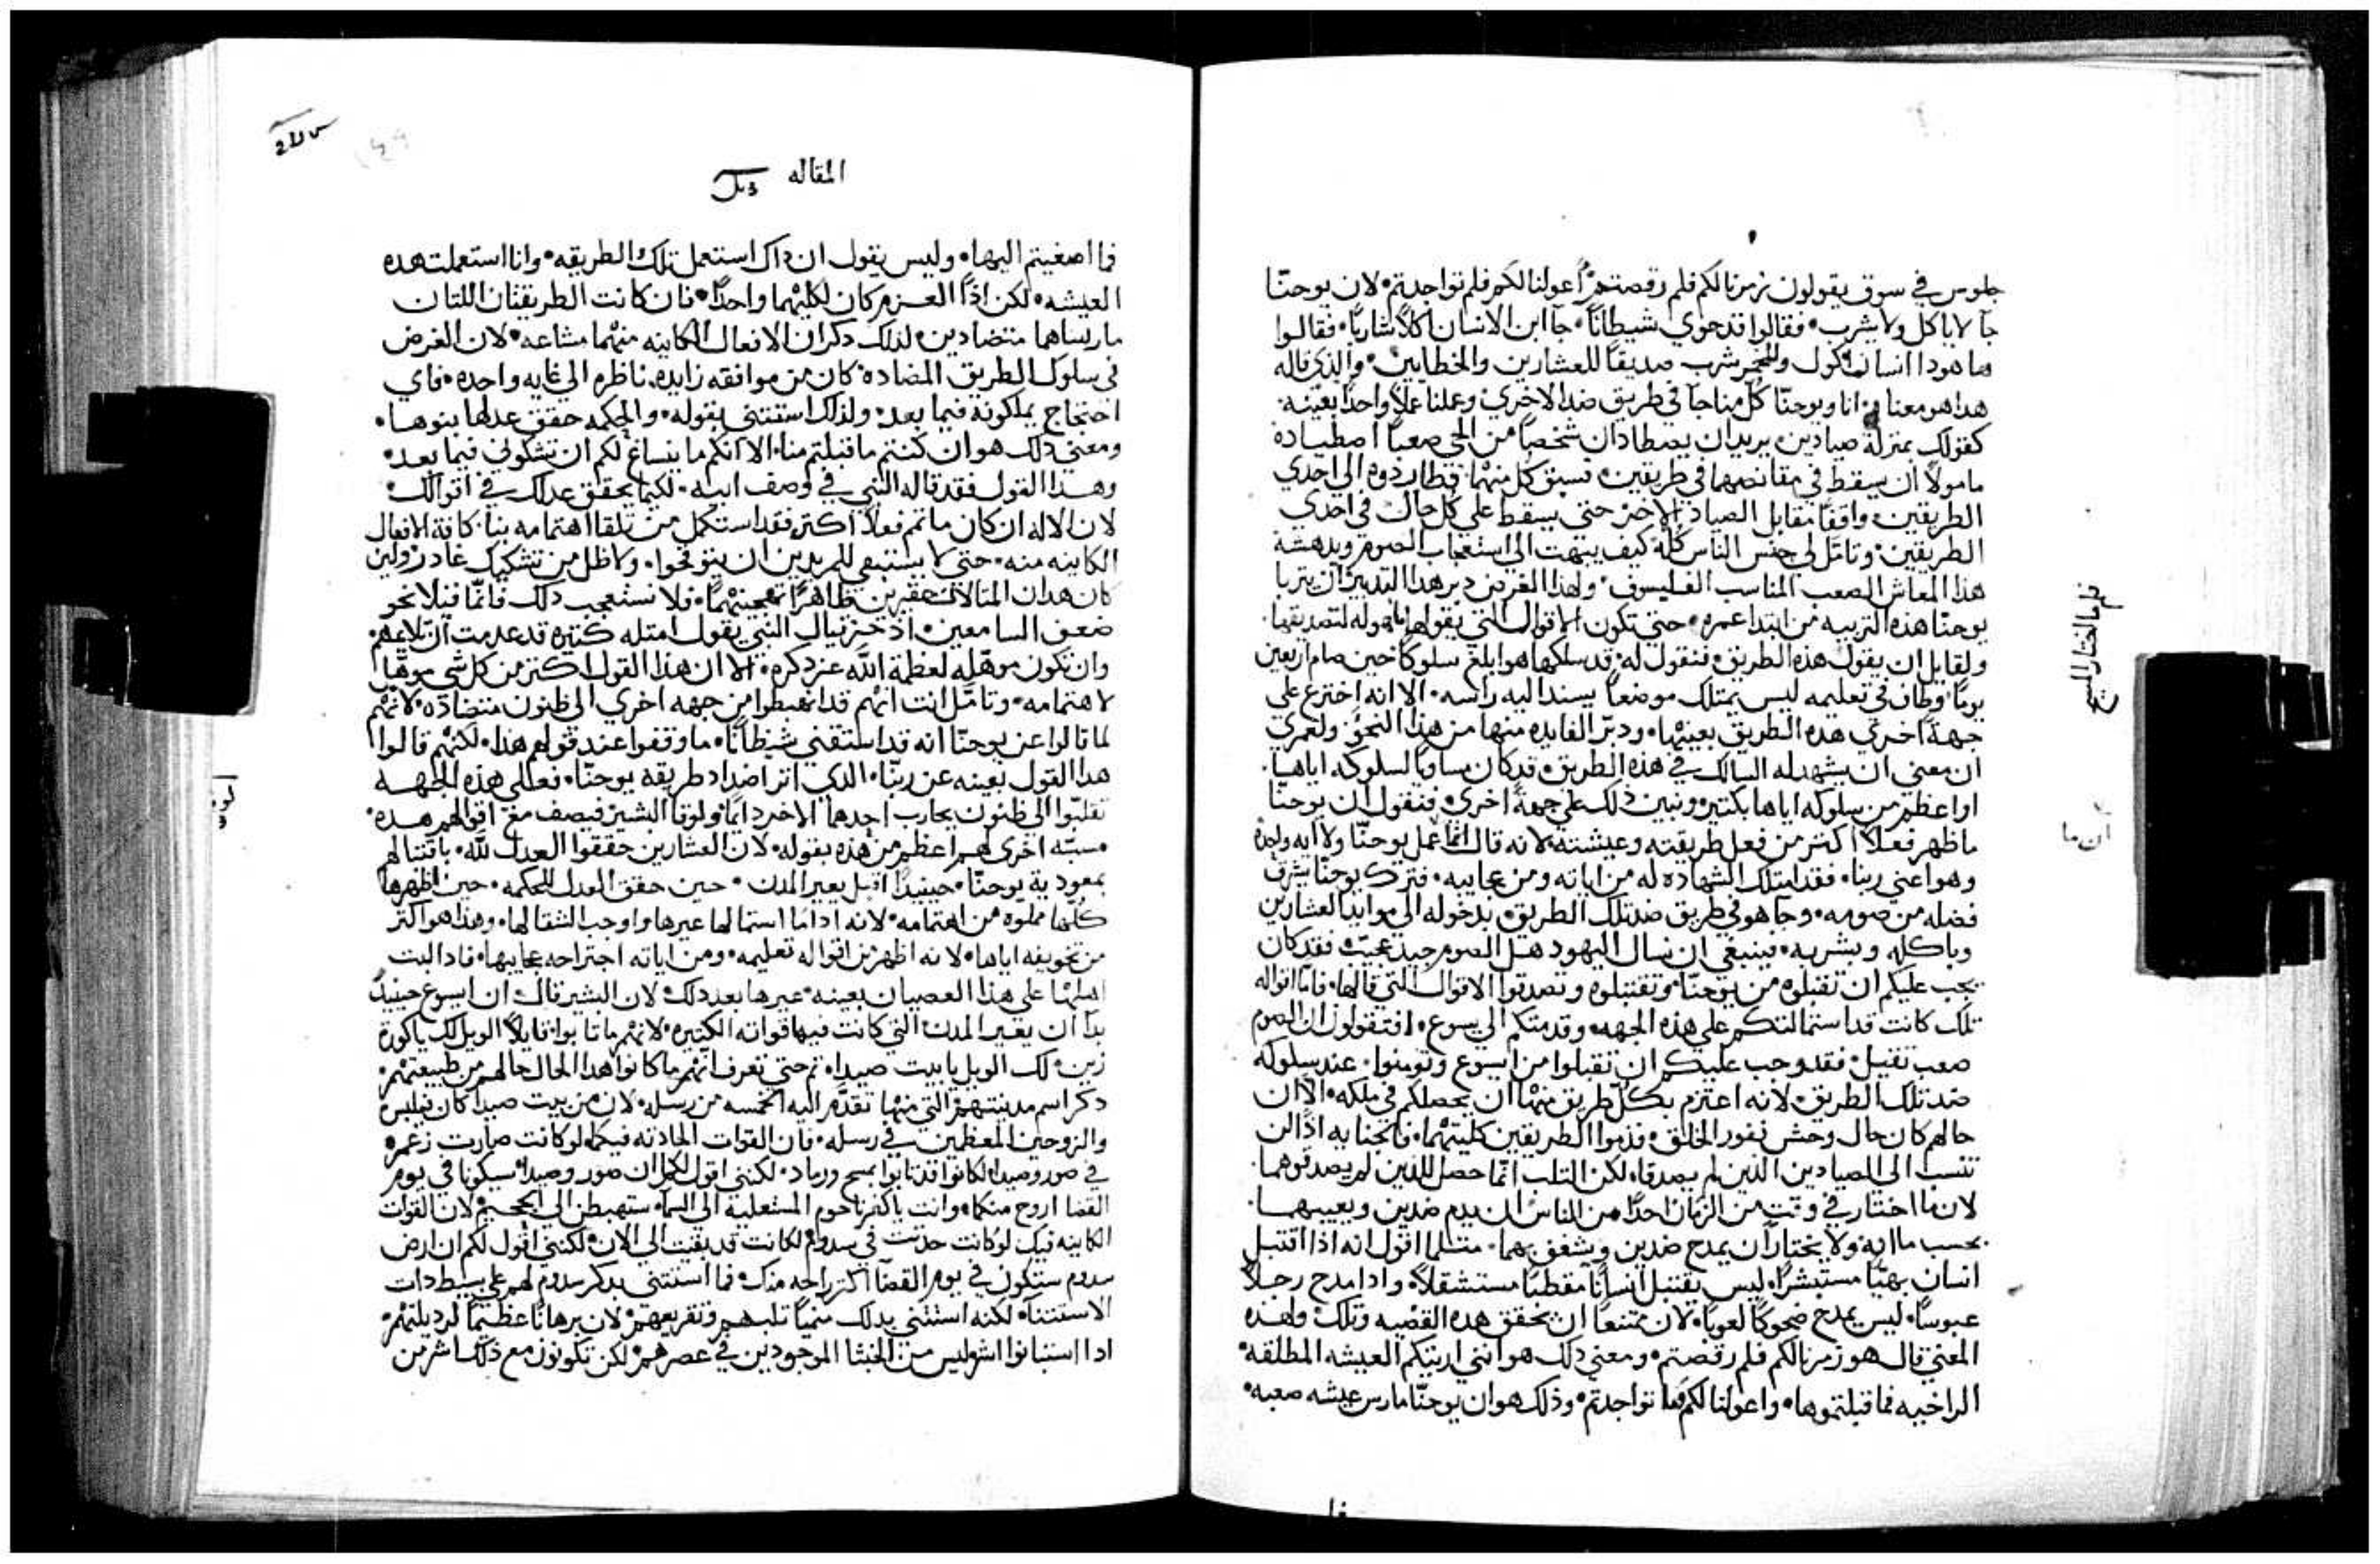 جلوس في سوق يقولون زمرنا لكم فلم رقصتم أعولنا لكم فلم تواجدتم لان يوحنّا
جآ لا ياكل ولا يشرب فقالوا قد حوي شيطاناً جآ ابن الانسان اكلاً شارباً فقالوا
ها هودا انسان اكول وللخمر شرب صديقاً للعشارين والخطايين والذي قاله
هدا هو معناه انا ويوحنّا كل منا جآ في طريق ضد الاخري وعملنا عملاً واحداً بعينه
كقولك بمنزلة صيادين يريدان يصطادان شخصاً من الحي صعباً اصطياده
مامولاً ان يسقط في مقانصهما في طريقين فسبق كل منهما فطارذوه الي احدي
الطريقين واقفاً مقابل الصياد الاخر حتي يسقط علي كل حال في احدي
الطريقين وتامّل لي جنس الناس كله كيف يبهت الي استعجاب الصوم ويدهشه
هذا المعاش الصعب المناسب الفليسوف ولهذا الغرض دبر هدا التدبير ان يتربا
يوحنّا هذه التربيه من ابتدا عمره حتي تكون الاقوال التي يقولها موله لتصديقها
ولقايل ان يقول هذه الطريق فنقول له قد سلكها هو ابلغ سلوكاً حين صام اربعين
يوماً وطاف في تعليمه ليس يمتلك موضعاً يسند اليه راسه الا انه اخترع علي
جهة اخري هده الطريق بعينها ودبر الفايده منها من هذا النحو ولعمري
ان معني ان يشهد له السالك في هذه الطريق قد كان مساوياً لسلوكه اياها
او اعظم من سلوكه اياها بكتير ونبين ذلك علي جهة اخري فنقول ان يوحنّا
ما ظهر فعلاً اكتر من فعل طريقته وعيشته لانه قال انما عمل يوحنّا ولا ايه واحده
وهو اعني ربنا فقد امتلك الشهاده له من اياته ومن عجايبه فترك يوحنا يشرف
فضله من صومه وجآ هو في طريق ضد تلك الطريق بدخوله الي موايد العشارين
وباكله وبشربه فينبغي ان نسال اليهود هل الصوم جيد عجيب فقد كان
يجب عليكم ان تقبلوه من يوحنّا وتقتبلوه وتصدقوا الاقوال التي قالها فامّا اقواله
تلك كانت قد استمالتكم علي هذه الجهه وقدمتكم الي يسوع افتقولون ان الصوم
صعب تقيل فقد وجب عليكم ان تقبلوا من ايسوع وتومنوا عند سلوكه
ضد تلك الطريق لانه اعتزم بكل طريق منهما ان يحصلكم في ملكه الا ان
حالهم كان حال وحش نفور الخلق فذموا الطريقين كلتيهما فالجنايه اذاً لن
تنسب الي الصيادين الذين لم يصدقا لكن الثلب انما حصل للذين لم يصدقوهما
لان ما اختار في وقت من الزمان احداً من الناس ان يذم ضدين ويعيبهما
بحسب ما ولا يختار ان يمدح ضدين ويشغف بهما متلما اقول انه اذا اقتبل
انسان بهيّاً مستبشراً ليس يقتبل انساناً مقطباً مستتقلاً وادا مدح رجلاً
عبوساً ليس يمدح ضحوكاً لعوباً لان ممتنعاً ان تحقق هده القضيه وتلك ولهده
المعني قال هو زمرنا لكم فلم رقصتم ومعني ذلك هو انني اريتكم العيشه المطلقه
الراخيه فما قبلتموها واعولنا لكم فما تواجدتم وذلك هو ان يوحنّا مارس عيشه صعبه
فلم ما اختار المسيح
ان ما
المقاله
فما اصغيتم اليها وليس يقول ان داك استعمل تلك الطريقه وانا استعملت هده
العيشه لكن اذاً العزم كان لكليهما واحداً فان كانت الطريقتان اللتان
مارساها متضادين لذلك دكر ان الافعال الكاينه منهما مشاعه لان الغرض
في سلوك الطريق المضاده كان من موافقه زايده ناظره الي غايه واحده فاي
احتجاج يملكونه فيما بعد ولذلك استتني بقوله والحكمه حقق عدلها بنوها
ومعني دلك هو ان كنتم ما قبلتم منا الا انكم ما ينساغ لكم ان تشكوني فيما بعد
وهذا القول فقد قاله النبي في وصف ابيه لكيما يحقق عدلك في اقوالك
لان الاله ان كان ما تم فعلاً اكتر فقد استكمل من تلقا اهتمامه بنا كافة الافعال
الكاينه منه حتي لا يستبقي للمريدين ان يتوقحوا ولا ظل من تشكيك غادر ولين
كان هدان المتالان حقيرين ظاهراً فلا تستعجب دلك فانما قبلا نحو
ضعف السامعين اذ حزقيال النبي يقول امتله كتيره قد عدمت ان تلاعهم
وان تكون موهله لعظمة الله عز دكره الا ان هذا القول اكتر من كل شي موهلاً
لاهتمامه وتامّل انت انهم قد انهبطوا من جهه اخري الي ظنون متضادّه لانهم
لما قالوا عن يوحنّا انه قد استقني شيطاناً ما وقفوا عند قولهم هذا لكنهم قالوا
هدا القول بعينه عن ربّنا الذي اتر اضداد طريقة يوحنّا فعلي هذه الجهه
تقلبوا الي ظنون يحارب احدها الاخر دايماً ولوقا البشير فيصف مع اقوالهم هده
مسبّه اخري لهم اعظم من هذه بقوله لان العشارين حققوا العدل لله باقتبالهم
بمعودية يوحنّا حينيذ اقبل يعير المدن حين حقق العدل للحكمه حين اظهرها
كلها مملوه من اهتمامه لانه اداما استمالها عيرها واوجب الشقا لها وهذا هو اكتر
من تخويفه اياها لانه اظهر من اقواله تعليمه ومن اياته اجتراحه عجايبها فاد البت
اهلها علي هذا العصيان بعينه عيرها بعد دلك لان البشير قال ان ايسوع حينيذ
بدا ان يعير المدن التي كانت فيها قواته الكتيره لانهم ما تابوا قايلاً الويل لك يا كورة
زين لك الويل يا بيت صيدا تم حتي تعرف انهم ما كانوا هدا الحال حالهم من طبيعتهم
دكر اسم مدينتهم التي منها تقدّم اليه الخمسه من رسله لان من بيت صيدا كان فيلبس
والزوجين المعظمين في رسله فان القوات الحادته فيكما لو كانت صارت زعم
في صور وصيدا لكانوا قد تابوا بمسح ورماد لكنني اقول لكم ان صور وصيدا سيكونا في يوم
القضا اروح منكما وانت يا كفرناحوم المستعليه الي السمآ ستهبطن الي الجحيم لان القوات
الكاينه فيك لو كانت حدتت في سدوم لكانت قد بقيت الي الان لكنني اقول لكم ان ارض
سدوم ستكون في يوم القضآ اكتر راحه منك فما استتني بدكر سدوم لهم علي بسيط دات
الاستتنآ لكنه استتني بدلك منمياً تلبهم وتقريعهم لان برهاناً عظيماً لرديلتهم
ادا استبانوا اشر ليس من الخبثا الموجودين في عصرهم لكن تكونون مع ذلك اشر من